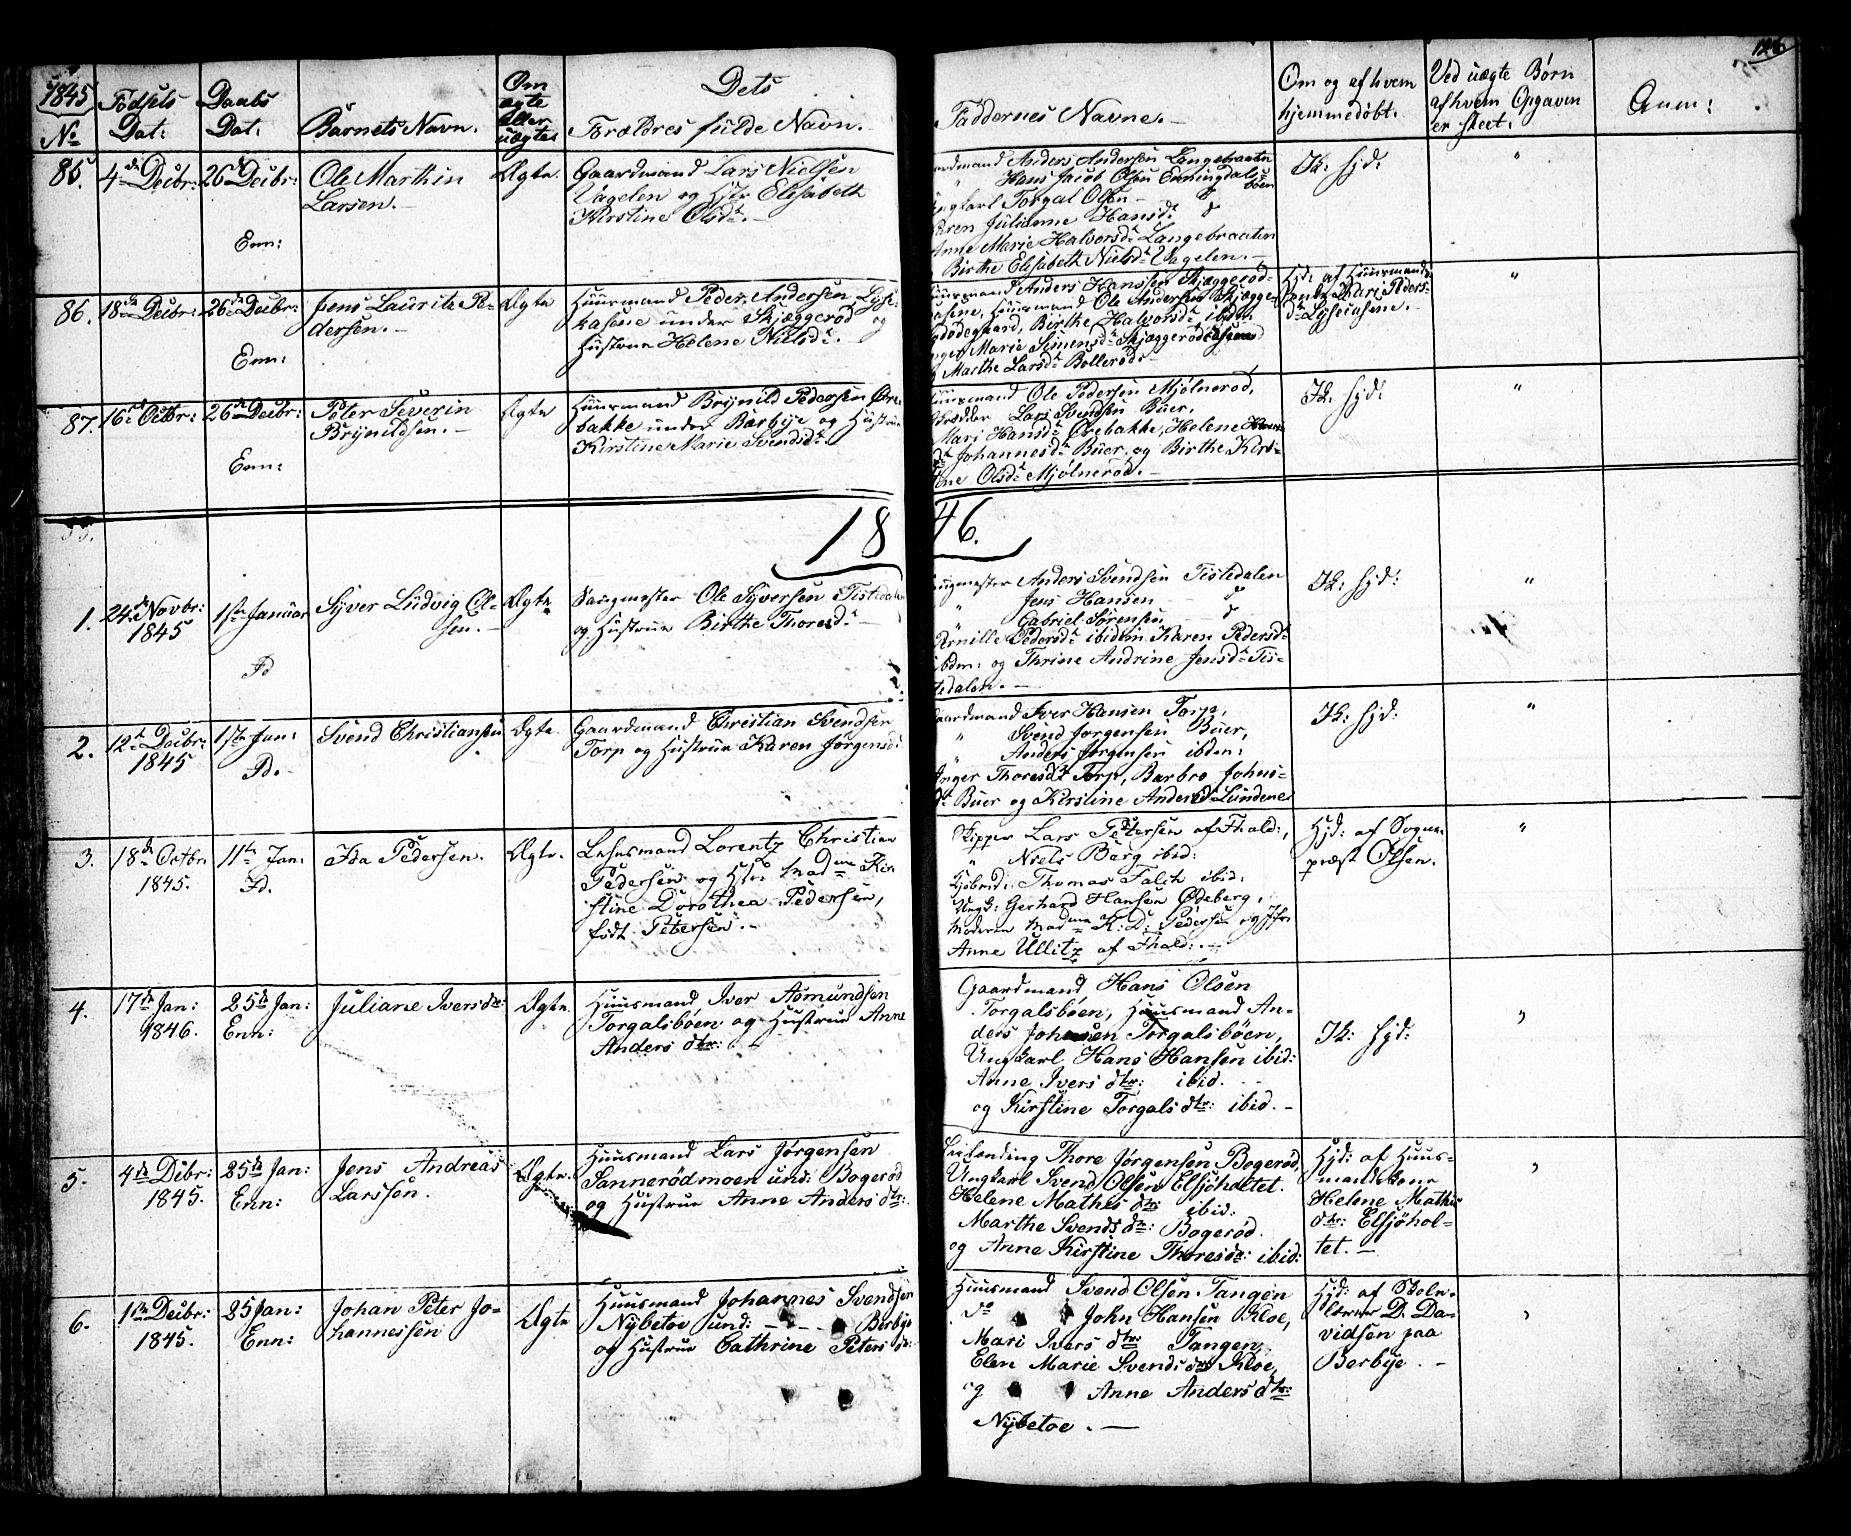 1845
No
Fødsels Dat:
Daabs Dat:
Barnets Navn.
Om ægte eller uægte
Dets
Forældres fulde Navn.
Faddernes Navne.
Om og af hvem
hjemmedøbt.
Ved uægte Børn
af hvem Opgaven
er skeet.
Anm:
85.
4de Decbr:
26de Decbr:
Enn:
Ole Marthin
Larsen.
Ægte
Gaardmand Lars Nielsen
Vagelen og Hstr Elisabeth
Kirstine Olsdr.
Anders Andersen Langebraaten
Hans Jacob Olsen Enningdals
böen
Torgal Olsen
Julianne Hansdr do
Anne Marie Halvorsdr Langebraaten
Birthe Elisabeth Nielsdr Vagelen.
Ik: hjd:
"
86.
18de Decbr:
26de Decbr:
Enn:
Jens Lauritz Pe-
dersen.
Ægte
Huusmand Peder Andersen Lyse-
kasene under Skjæggerød og
Hustrue Helene Nielsdr.
Huusmand Anders Hanssen Skjæggerød-
Huusmand Ole Andersen Skjægge-
rødødegaard, Birthe Halvorsdr ibidm
Inger Marie Simensdr Skjæggerød
og Marthe Larsdr Bollerød.
Hjd: af Huusmands
Mari Peders-
dr Lysekasene.
"
87.
16de Octbr:
26de Decbr:
Enn:
Peter Severin
Brynildsen.
Ægte
Huusmand Brynild Pedersen Øre-
bakke under Bærbye og Hustrue
Kirstine Marie Svendsdr
Huusmand Ole Pedersen Mjölnerød,
Lars Svendsen Büer,
Mari Hansdr Ørebakke, Helene
Johannesdr Büer og Birthe Kirs-
tine Olsdr Mjölnerød.
Ik: hjd:
"
1846.
1.
24de Novbr:
1845
1ste Januar
Id
Syver Ludvig Ol-
sen.
Ægte
Saugmester Ole Syversen Tistedalen
og Hustrue Birthe Thoresdr
Saugmester Anders Svendsen Tistedalen
" Jens Hansen do
" Gabriel Sörensen do
Pernille Pedersdr ibidm Karen Pedersdr
ibdm: og Thrine Andrine Jensdr Tis-
tedalen.
Ik: hjd:
"
2.
12te Decbr:
1845
1ste Jan:
Id.
Svend Christiansen
Ægte.
Gaardmand Christian Svendsen
Torp og Hustrue Karen Jörgensdr
Gaardmand Iver Hansen Torp,
" Svend Jorgensen Büer,
" Anders Jörgensen ibdm:
Inger Thoresdr Torp, Barbro Johns-
dr Büer og Kirstine Andersdr Lundene
Ik: hjd:
"
3.
18de Octbr
1845.
11te Jan:
Id.
Ida Pedersen.
Ægte.
Lehnsmand Lorentz Christian
Pedersen og Hstr Madme Kir
stine Dorothea Pedersen,
født Petersen.
Skipper Lars Petersen af Fhald:,
" Niels Berg ibid:
Thomas Falck ibid:
Ungk: Gerhard Hansen Ødeberg,
Moderen Madme K: D: Pedersen og Jfr
Anne Ullitz af Fhald:
Hjd: af Sogne-
præst Olsen.
"
4.
17de Jan:
1846.
25de Jan:
Enn:
Juliane Iversdtr:
Ægte.
Huusmand Iver Asmundsen
Torgalsböen og Hustrue Anne
Andersdtr:
Gaardmand Hans Olsen
Torgalsböen, Huusmand An-
ders Johansen Torgalsböen,
Ungkarl Hans Hansen ibid:
Anne Iversdtr: ibid.
og Kirstine Torgalsdtr: ibid.
Ik: hjd:
"
5.
4de Dcbr:
1845.
25de Jan:
Enn:
Jens Andreas
Larssen.
Ægte.
Huusmand Lars Jørgensen
Sannerødmoen und: Bogerød
og Hustrue Anne Andersdtr:
Thore Jørgensen Bogerød,
Ungkarl Svend Olsen Elsjöholtet.
Helene Mathisdtr ibid:
Marthe Svendsdtr: Bogerød.
og Anne Kirstine Thoresdtr: ibid:
Hjd: af Huus-
mandskone
Helene Mathis
dtr: Elsjöhol-
tet.
"
6.
1ste Decbr:
1845.
25 Jan:
Enn:
Johan Peter Jo-
hannessen
Ægte
Huusmand Johannes Svendsen
Nybetoe und: Berbye
og Hustrue Cathrine Petersdtr:
Huusmand Svend Olsen Tangen
do John Hansen Kloe,
Mari Iversdtr Tangen,
Elen Marie Svendsdtr Kloe,
og Anne Andersdtr:
Nybetoe.
Hjd: af Skole-
lærer D. Da-
vidsen paa
Berbye.
"